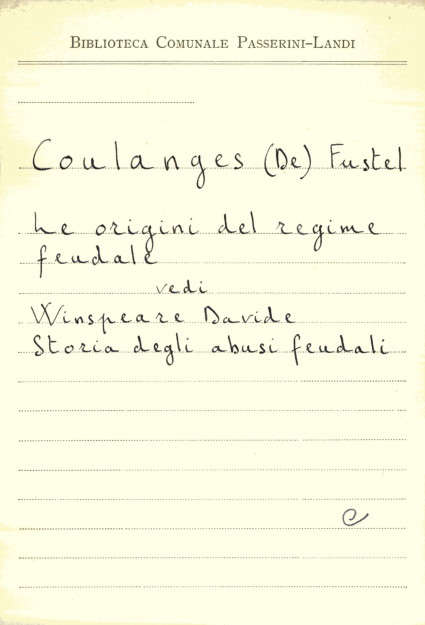 Biblioteca Comunale Passerini-Landi
Coulanges (De) Fustel
Le origini del regime
feudale
vedi
Winspeare Davide
Storia degli abusi feudali
C